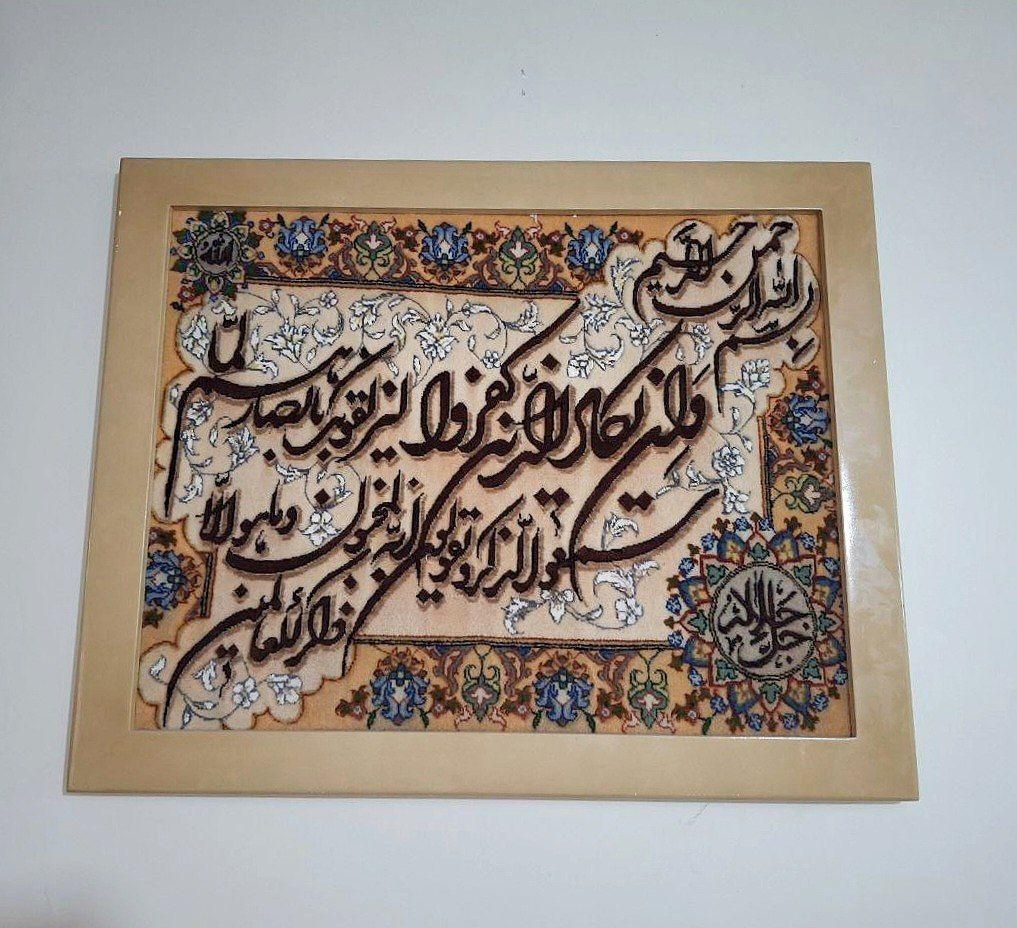 بسم الله الرحمن الرحیم
وان یکاد الذین کفروا لیزلقونک بابصارهم لما
سمعوا الذکر و یقولون انه لمجنون و ما هو الا
ذکر للعالمین
الله
جل جلاله